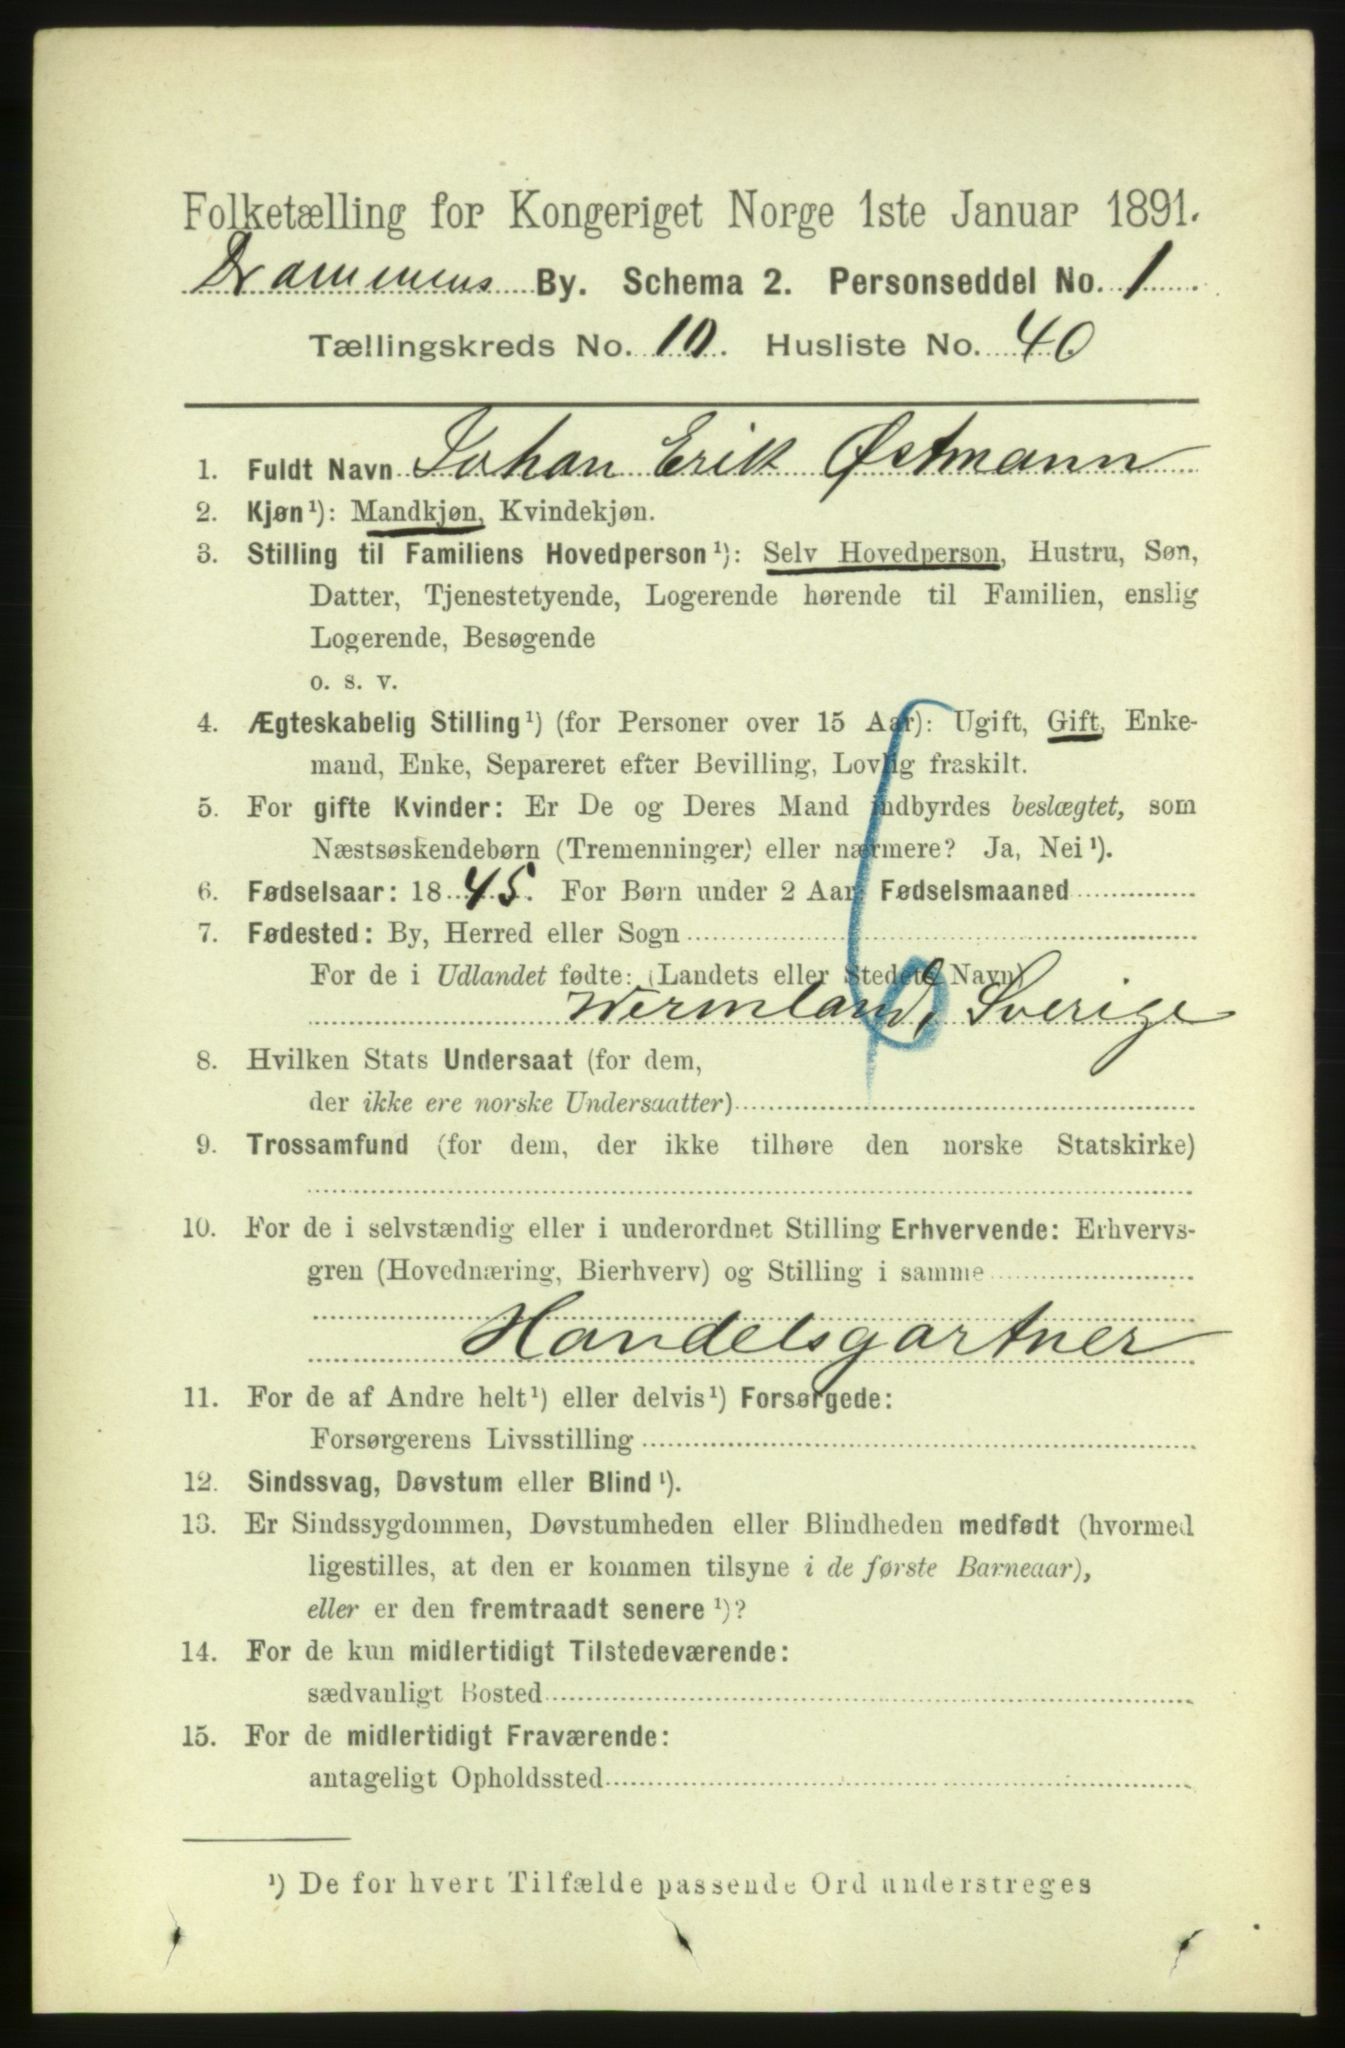 Folketælling for Kongeriget Norge 1ste Januar 1891.
Drammens By. Schema 2. Personseddel No. 1
Tællingskreds No. 10. Husliste No. 40
1. Fuldt Navn Johan Erik Østmann
2. Kjøn¹): Mandkjøn, Kvindekjøn.
3. Stilling til Familiens Hovedperson¹): Selv Hovedperson, Hustru, Søn,
Datter, Tjenestetyende, Logerende hørende til Familien, enslig
Logerende, Besøgende
o. s. v.
4. Ægteskabelig Stilling¹) (for Personer over 15 Aar): Ugift, Gift, Enke-
mand, Enke, Separeret efter Bevilling, Lovlig fraskilt.
5. For gifte Kvinder: Er De og Deres Mand indbyrdes beslægtet, som
Næstsøskendebørn (Tremenninger) eller nærmere? Ja, Nei¹).
6. Fødselsaar: 1845. For Børn under 2 Aar: Fødselsmaaned
7. Fødested: By, Herred eller Sogn
For de i Udlandet fødte: (Landets eller Stedets Navn)
Wermland, Sverige
8. Hvilken Stats Undersaat (for dem,
der ikke ere norske Undersaatter)
9. Trossamfund (for dem, der ikke tilhøre den norske Statskirke)
10. For de i selvstændig eller i underordnet Stilling Erhvervende: Erhvervs-
gren (Hovednæring, Bierhverv) og Stilling i samme
Handelsgartner
11. For de af Andre helt¹) eller delvis¹) Forsørgede:
Forsørgerens Livsstilling
12. Sindssvag, Døvstum eller Blind¹).
13. Er Sindssygdommen, Døvstumheden eller Blindheden medfødt (hvormed
ligestilles, at den er kommen tilsyne i de første Barneaar),
eller er den fremtraadt senere¹)?
14. For de kun midlertidigt Tilstedeværende:
sædvanligt Bosted
15. For de midlertidigt Fraværende:
antageligt Opholdssted
¹) De for hvert Tilfælde passende Ord understreges